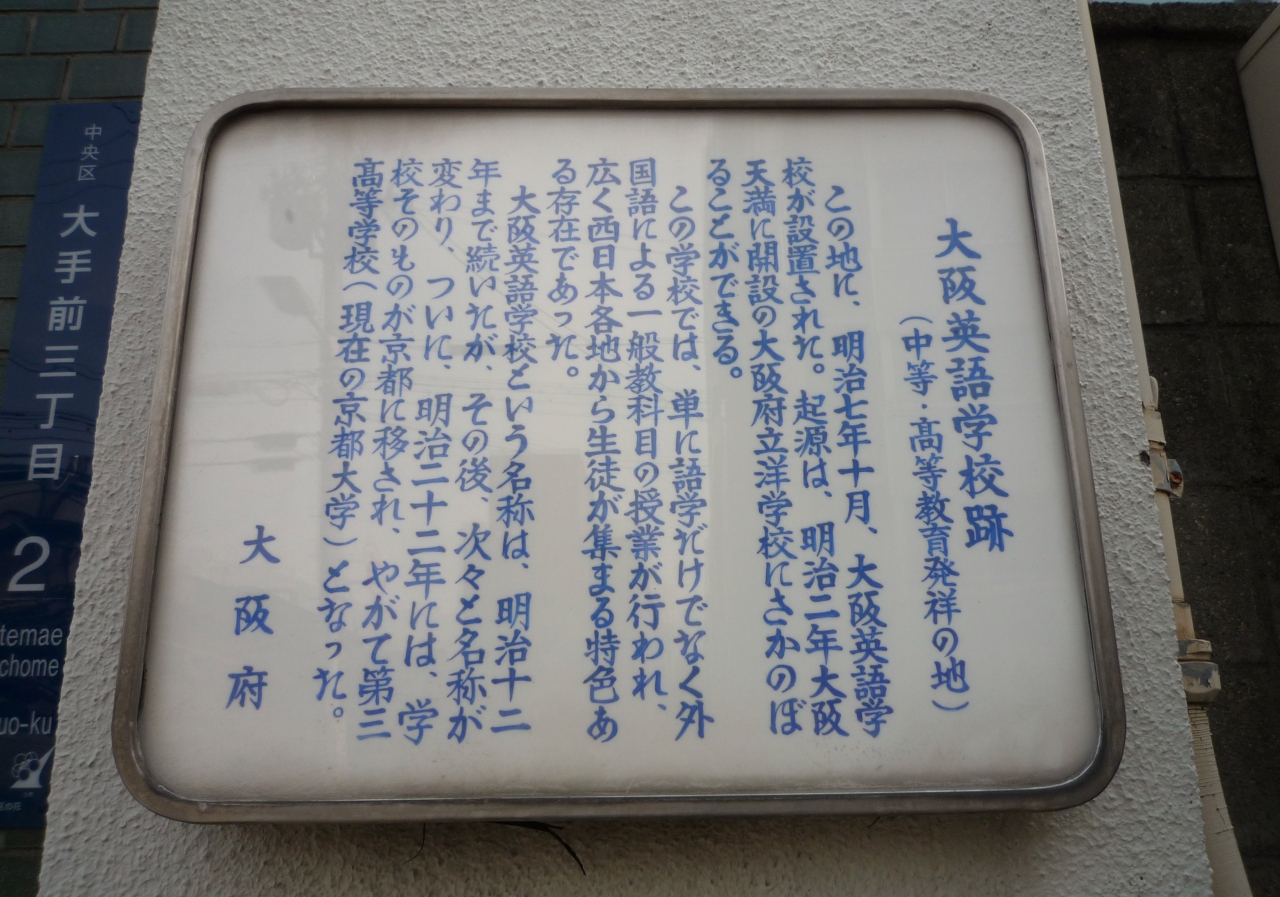 大阪英語学校跡
（中等・高等教育発祥の地）
この地に、明治七年十月、大阪英語学
校が設置された。起源は、明治二年大阪
天満に開設の大阪府立洋学校にさかのぼ
ることができる。
この学校では、単に語学だけでなく外
国語による一般教科目の授業が行われ、
広く西日本各地から生徒が集まる特色あ
る存在であった。
大阪英語学校という名称は、明治十二
年まで続いたが、その後、次々と名称が
変わり、ついに、明治二十二年には、学
校そのものが京都に移され、やがて第三
高等学校（現在の京都大学）となった。
大阪府
中央区
大手前三丁目
2
temae
chome
uo-ku